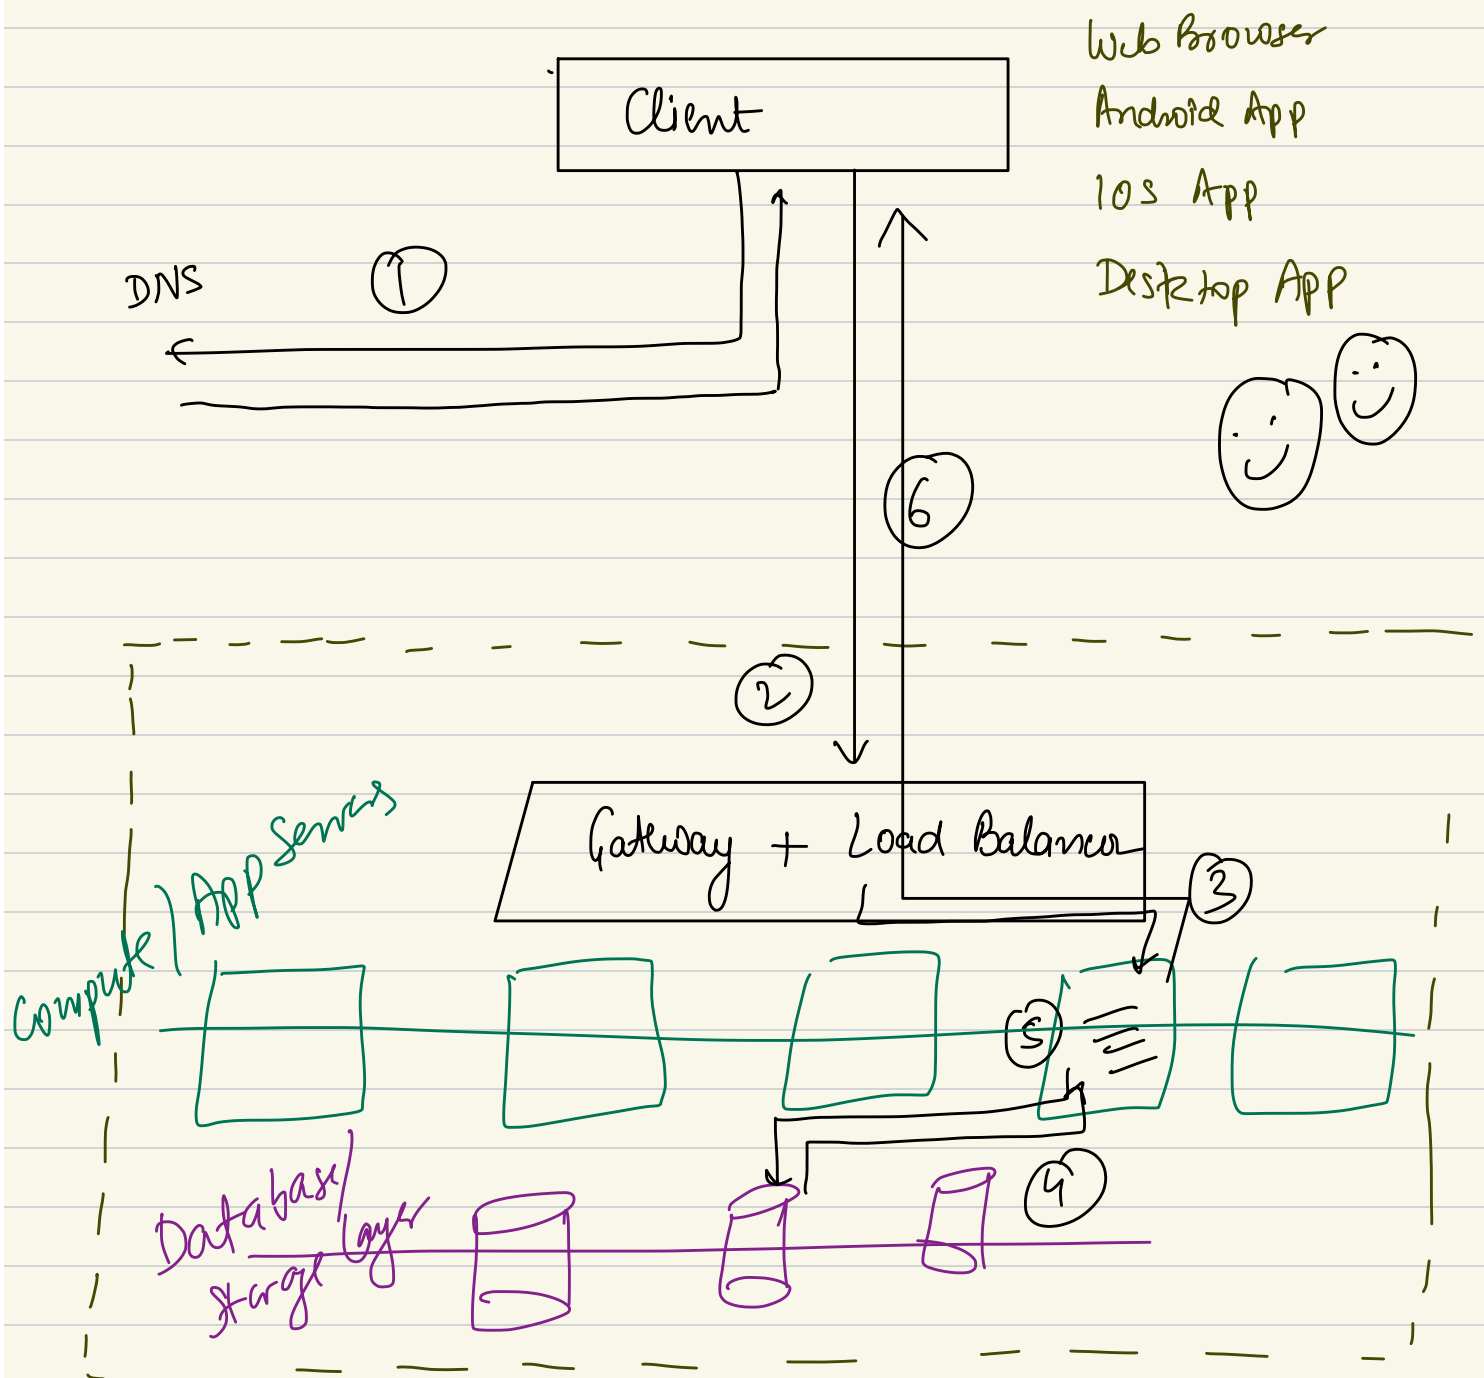 Web Browser
Client
Android App
IOS App
DNS
1
Desktop App
6
2
Gateway + Load Balancer
3
Compute / App Servers
5
4
Database /
Storage Layer